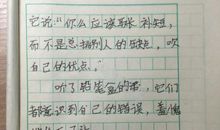 它说：“你么应该取长补短，
而不是总揭别人的短点，吹
自己的优点。”
听了铅笔盒的话，它们
都意识到自己的错误，羞愧